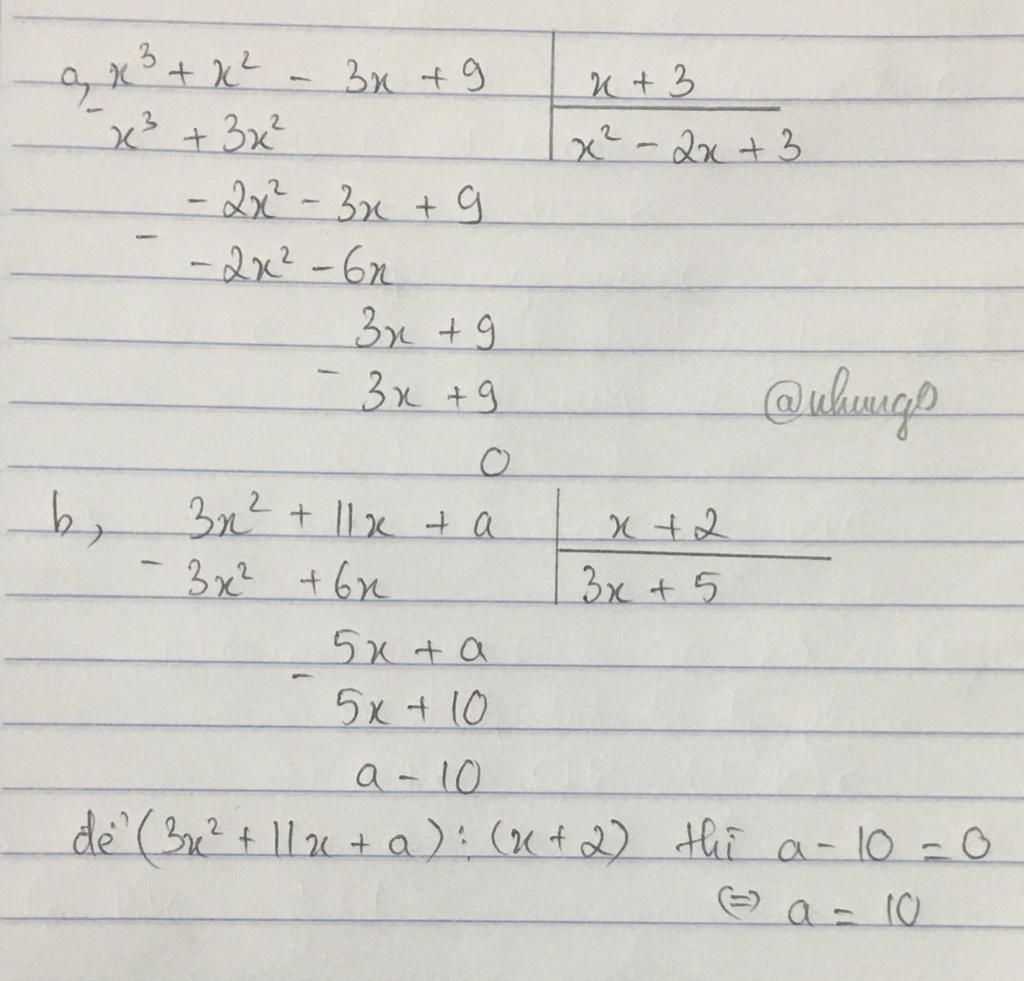 a, x³ + x² - 3x + 9 | x + 3
- x³ + 3x² | x² - 2x + 3
- 2x² - 3x + 9
-
- 2x² - 6x
3x + 9
- 3x + 9
@nhungo
0
b, 3x² + 11x + a | x + 2
- 3x² + 6x | 3x + 5
5x + a
-
5x + 10
a - 10
để (3x² + 11x + a) ⋮ (x + 2) thì a - 10 = 0
(=) a = 10